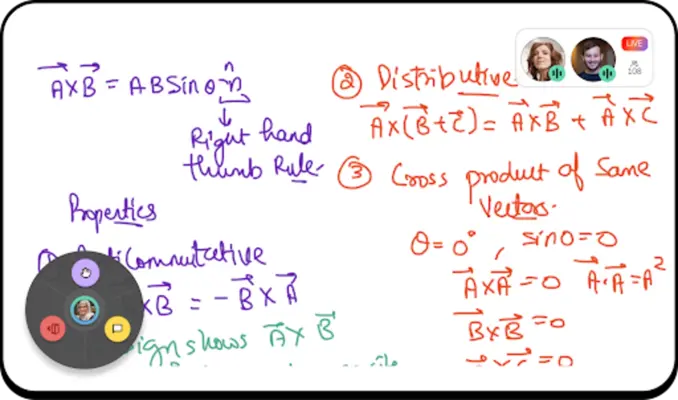 A⃗×B⃗ = A B Sin θ n̂
Right hand
thumb Rule.
Properties
Commutative
×B⃗ = −B⃗×A⃗
sign shows A⃗×B⃗
② Distributive
A⃗×(B⃗+C⃗) = A⃗×B⃗ + A⃗×C⃗
③ Cross product of Same
Vectors.
θ=0°, sinθ=0
A⃗×A⃗=0 A⃗·A⃗=A²
B⃗×B⃗=0
=0
LIVE
108